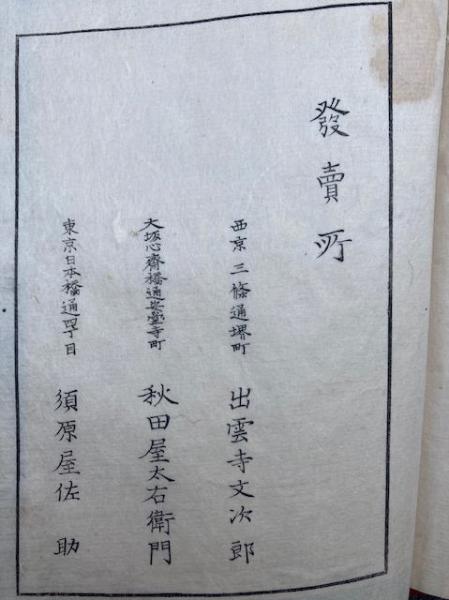 發賣所
西京三條通堺町 出雲寺文次郎
大坂心齋橋通安堂寺町 秋田屋太右衛門
東京日本橋通四丁目 須原屋佐助